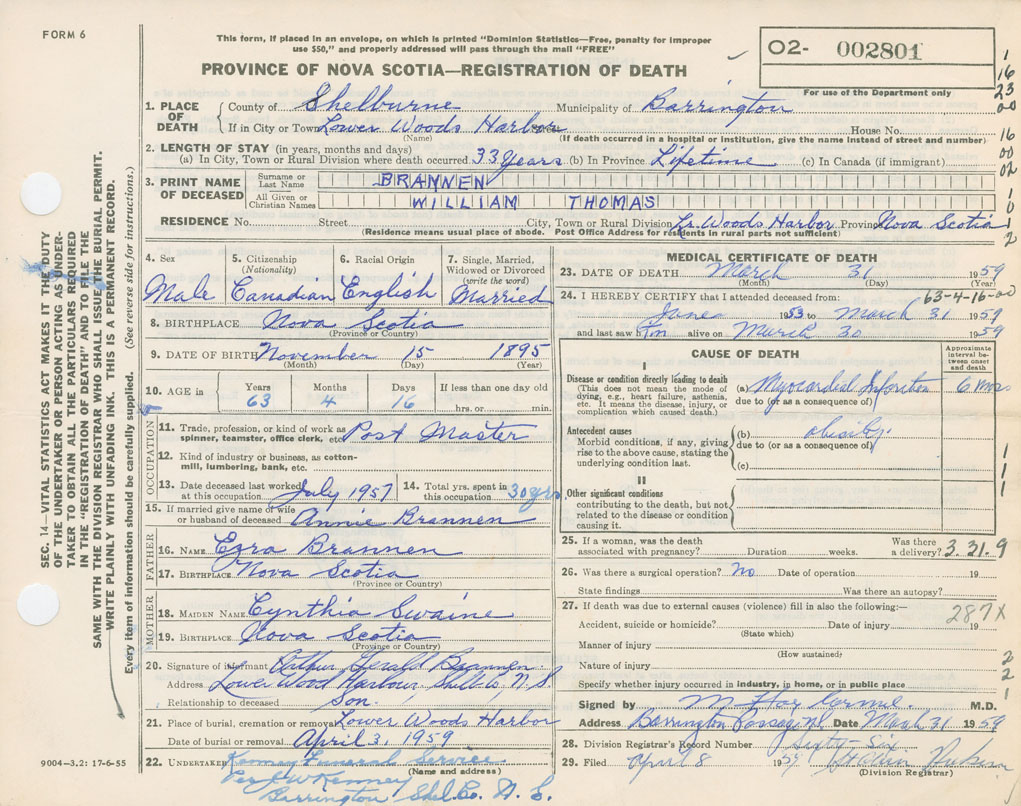 FORM 6
This form, if placed in an envelope, on which is printed "Dominion Statistics—Free, penalty for improper
use $50," and properly addressed will pass through the mail "FREE"
PROVINCE OF NOVA SCOTIA—REGISTRATION OF DEATH
O2- 002801
For use of the Department only
1
16
23
00
16
00
02
1
0
1
2
SEC. 14—VITAL STATISTICS ACT MAKES IT THE DUTY
OF THE UNDERTAKER OR PERSON ACTING AS UNDER-
TAKER TO OBTAIN ALL THE PARTICULARS REQUIRED
IN THE "REGISTRATION OF DEATH" AND TO FILE THE
SAME WITH THE DIVISION REGISTRAR WHO SHALL ISSUE THE BURIAL PERMIT.
WRITE PLAINLY WITH UNFADING INK. THIS IS A PERMANENT RECORD.
Every item of information should be carefully supplied. (See reverse side for instructions.)
1. PLACE OF DEATH
County of Shelburne Municipality of Barrington
If in City or Town Lower Woods Harbor House No.
(Name) (If death occurred in a hospital or institution, give the name instead of street and number)
2. LENGTH OF STAY (in years, months and days)
(a) In City, Town or Rural Division where death occurred 33 Years (b) In Province Lifetime (c) In Canada (if immigrant)
3. PRINT NAME OF DECEASED
Surname or Last Name BRANNEN
All Given or Christian Names WILLIAM THOMAS
RESIDENCE No. Street City, Town or Rural Division Lr. Woods Harbor Province Nova Scotia
(Residence means usual place of abode. Post Office Address for residents in rural parts not sufficient)
4. Sex
Male
5. Citizenship (Nationality)
Canadian
6. Racial Origin
English
7. Single, Married, Widowed or Divorced (write the word)
Married
8. BIRTHPLACE Nova Scotia
(Province or Country)
9. DATE OF BIRTH November 15 1895
(Month) (Day) (Year)
10. AGE in Years Months Days If less than one day old
63 4 16 hrs. or min.
OCCUPATION
11. Trade, profession, or kind of work as
spinner, teamster, office clerk, etc. Post Master
12. Kind of industry or business, as cotton-
mill, lumbering, bank, etc.
13. Date deceased last worked
at this occupation July 1957
14. Total yrs. spent in
this occupation 30 yrs
15. If married give name of wife
or husband of deceased Annie Brannen
FATHER
16. NAME Ezra Brannen
17. BIRTHPLACE Nova Scotia
(Province or Country)
MOTHER
18. MAIDEN NAME Cynthia Swaine
19. BIRTHPLACE Nova Scotia
(Province or Country)
20. Signature of informant Arthur Gerald Brannen
Address Lower Wood Harbour Shelb. Co. N.S.
Relationship to deceased Son.
21. Place of burial, cremation or removal Lower Woods Harbor
Date of burial or removal April 3, 1959
22. UNDERTAKER Kenney Funeral Service
(Name and address)
Kenney
Barrington Shel. Co. N. S.
9004-3.2: 17-6-55
MEDICAL CERTIFICATE OF DEATH
23. DATE OF DEATH March 31 1959
(Month) (Day) (Year)
24. I HEREBY CERTIFY that I attended deceased from: 63-4-16-00
June 1953 to March 31 1959
and last saw him alive on March 30 1959
CAUSE OF DEATH
Approximate interval be-tween onset and death
I
Disease or condition directly leading to death
(This does not mean the mode of
dying, e.g., heart failure, asthenia,
etc. It means the disease, injury, or
complication which caused death.)
(a) Myocardial Infarction 6 mos
due to (or as a consequence of)
Antecedent causes
Morbid conditions, if any, giving
rise to the above cause, stating the
underlying condition last.
(b) obesity.
due to (or as a consequence of)
(c)
1
1
1
II
Other significant conditions
contributing to the death, but not
related to the disease or condition
causing it.
25. If a woman, was the death Was there
associated with pregnancy? Duration weeks. a delivery? 3.31.9
26. Was there a surgical operation? no Date of operation 19
State findings Was there an autopsy?
27. If death was due to external causes (violence) fill in also the following:— 287X
Accident, suicide or homicide? Date of injury 19
(State which)
Manner of injury
(How sustained)
Nature of injury
Specify whether injury occurred in industry, in home, or in public place
2
2
1
Signed by M.D.
Address Barrington Passage Date March 31 1959
28. Division Registrar's Record Number Sixty-Six
29. Filed April 8 1959
(Division Registrar)